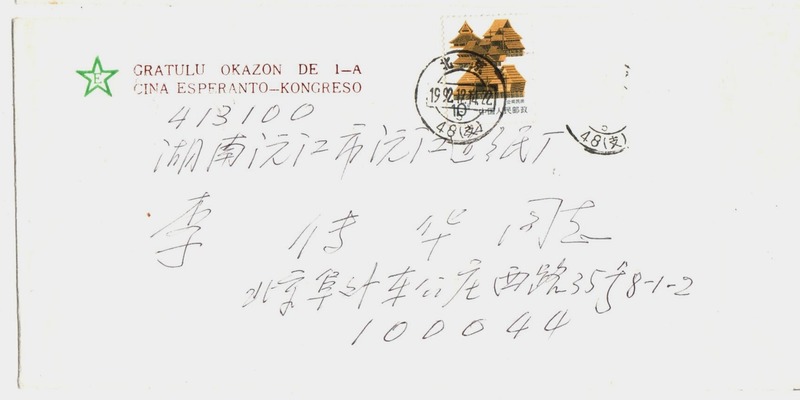 E
GRATULU OKAZON DE 1–A
ĈINA ESPERANTO–KONGRESO
北京
1992.12.14.22
48(支)
10分
中国人民邮政
48(支)
413100
湖南沅江市沅江造纸厂
李传华同志
北京阜外车公庄西路35号8-1-2
100044